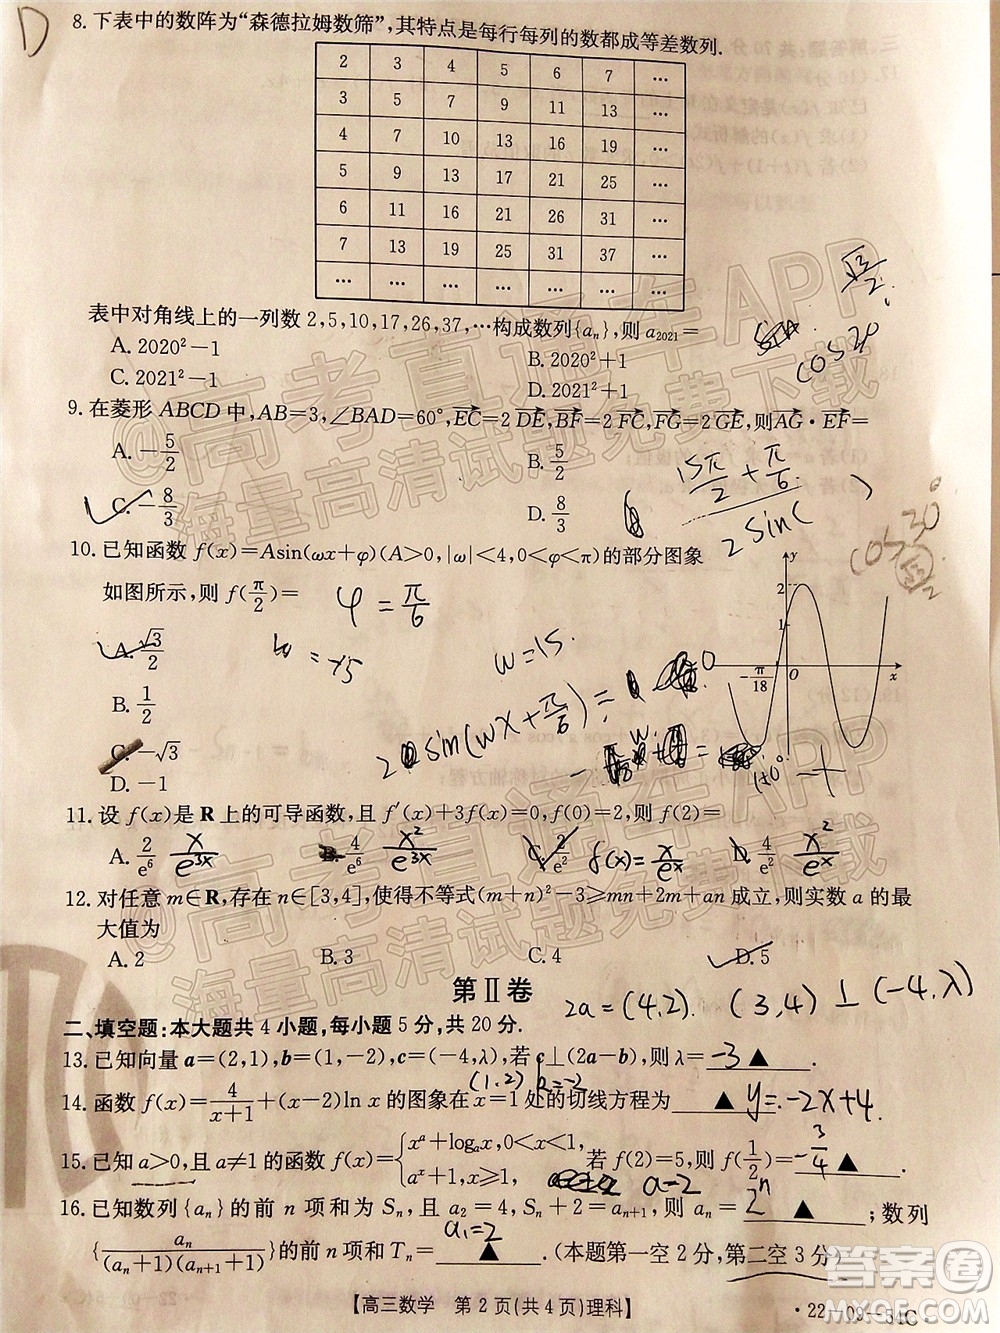 D
8. 下表中的数阵为“森德拉姆数筛”,其特点是每行每列的数都成等差数列.
2 3 4 5 6 7 …
3 5 7 9 11 13 …
4 7 10 13 16 19 …
5 9 13 17 21 25 …
6 11 16 21 26 31 …
7 13 19 25 31 37 …
… … … … … … …
表中对角线上的一列数 2,5,10,17,26,37,…构成数列{aₙ},则 a₂₀₂₁=
A. 2020²−1
B. 2020²+1
C. 2021²−1
D. 2021²+1
cos30
9. 在菱形 ABCD 中,AB=3,∠BAD=60°,EC→=2DE→,BF→=2FC→,FG→=2GE→,则AG→·EF→=
A. −5/2
B. 5/2
C. −8/3
D. 8/3
15π/2 + π/6
2sin(
cos30°
10. 已知函数 f(x)=Asin(ωx+φ)(A>0,|ω|<4,0<φ<π)的部分图象
如图所示,则 f(π/2)= φ=π/6
A. √3/2
w=-15 w=15
B. 1/2
C. −√3
2sin(wx+π/6)=
D. −1
y
2
1
−π/18 O x
11. 设 f(x)是 R 上的可导函数,且 f′(x)+3f(x)=0,f(0)=2,则 f(2)=
A. 2/e⁶ x/e³ˣ
B. 4/e⁶ x²/e³ˣ
C. 2/e² f(x)=x/eˣ
D. 4/e² x²/eˣ
12. 对任意 m∈R,存在 n∈[3,4],使得不等式(m+n)²−3≥mn+2m+an 成立,则实数 a 的最
大值为
A. 2
B. 3
C. 4
D. 5
第Ⅱ卷
2a=(4,2). (3,4)⊥(-4,λ)
二、填空题:本大题共 4 小题,每小题 5 分,共 20 分.
13. 已知向量 a=(2,1),b=(1,−2),c=(−4,λ),若 c⊥(2a−b),则 λ= -3 ▲ .
(1,2) k=-2
14. 函数 f(x)=4/(x+1)+(x−2)ln x 的图象在 x=1 处的切线方程为 ▲ y=-2x+4.
15. 已知 a>0,且 a≠1 的函数 f(x)={xᵃ+logₐx,0<x<1, aˣ+1,x≥1, 若 f(2)=5,则 f(1/2)= -3/4 ▲ .
a=2
16. 已知数列{aₙ}的前 n 项和为 Sₙ,且 a₂=4,Sₙ+2=aₙ₊₁,则 aₙ= 2ⁿ ▲ ;数列
a₁=2
{aₙ/((aₙ+1)(aₙ₊₁+1))}的前 n 项和 Tₙ= ▲ .(本题第一空 2 分,第二空 3 分)
【高三数学 第 2 页(共 4 页)理科】
·22−09−54C·
@高考直通车APP
海量高清试题免费下载
@高考直通车APP
海量高清试题免费下载
答案圈
MXQE.COM